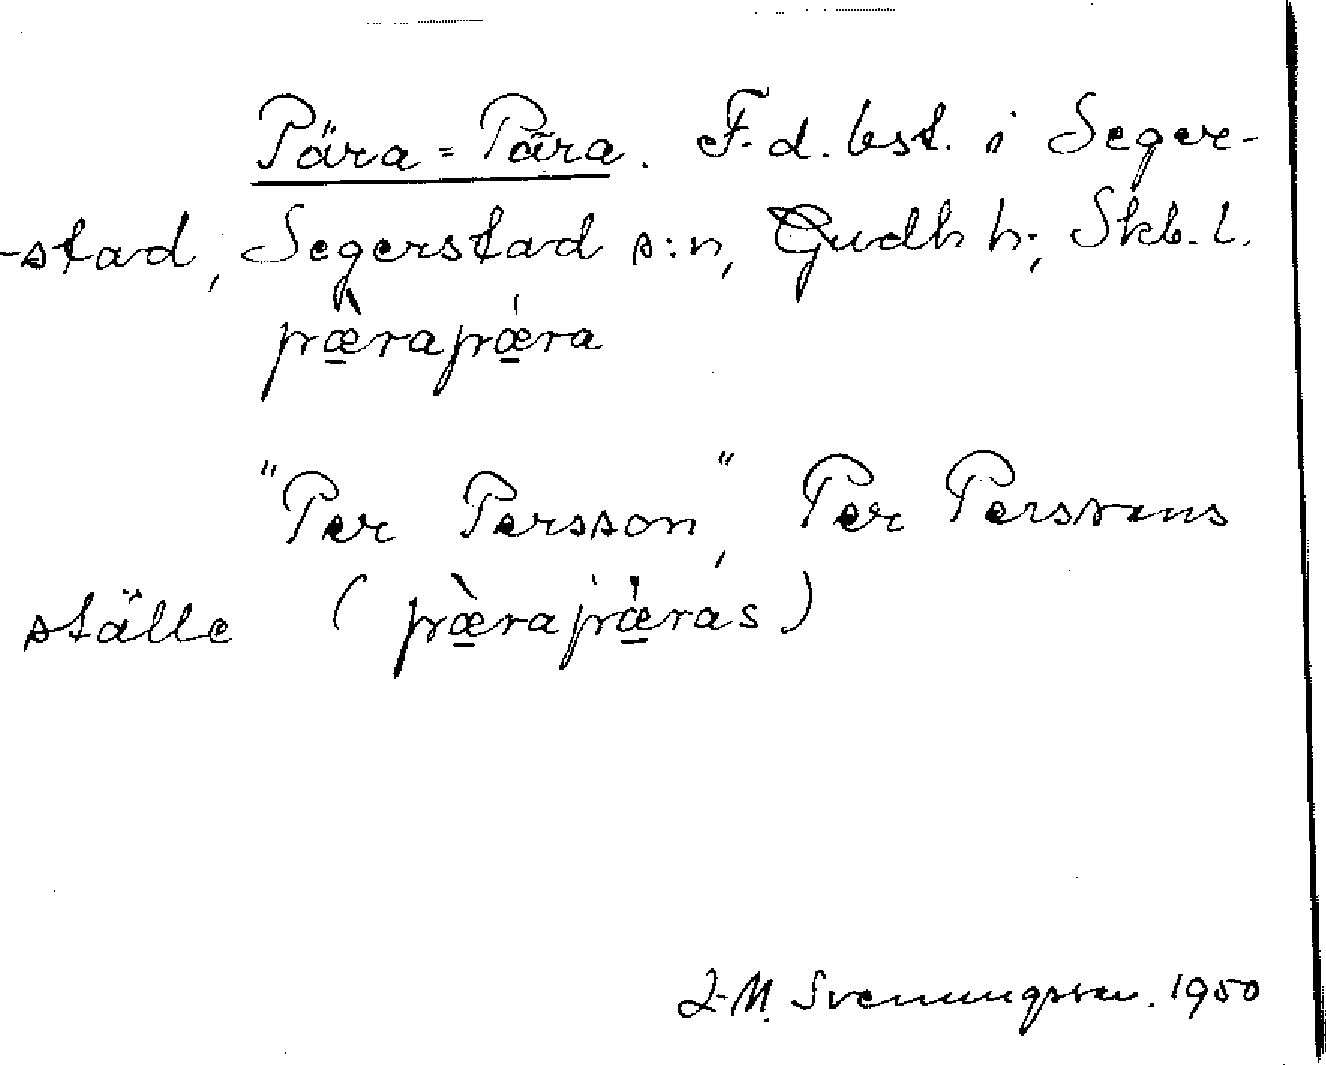 Pära = Pära. F.d. bst. i Seger-
-stad, Segerstad s:n, Gudh h; Skb. l.
pæ̠̀rapǽ̠ra
"Per Persson", Per Perssons
ställe (pæ̠̀rapǽ̠ras)
Svenungsson. 1950